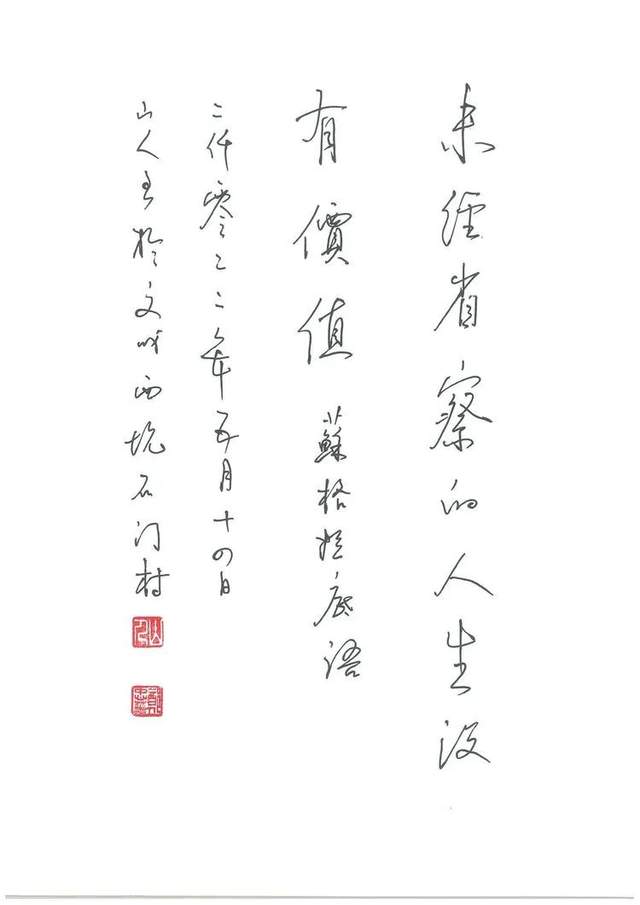 未經省察的人生没
有價值 蘇格拉底語
二仟零二二年五月十四日
山人書於文成西坑石门村